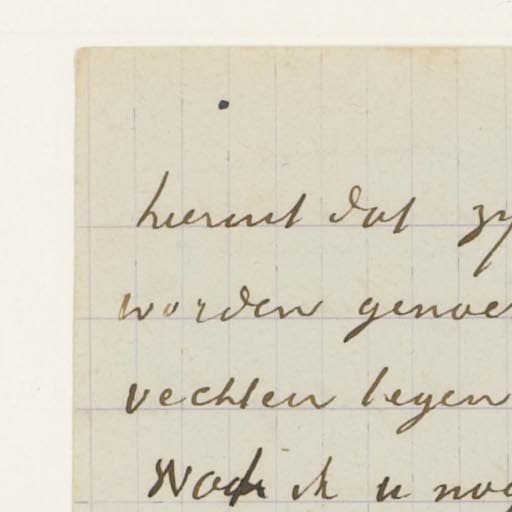 hieruit dat zy
worden genoe
vechten tegen
Noch ik u nog